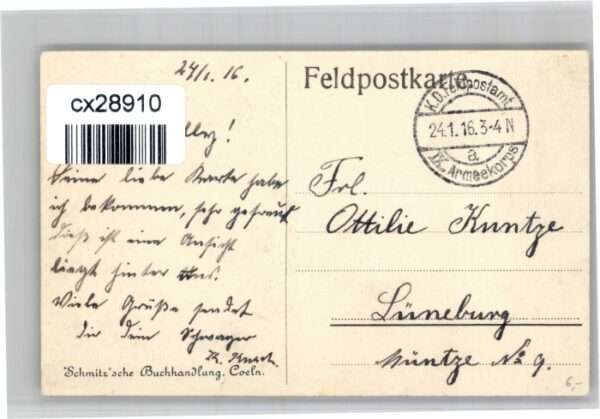 24/1. 16.
Feldpostkarte
K.D. Feldpostamt
24.1.16.3-4 N
a
IX. Armeekorps
cx28910
Deine liebe Karte habe
ich bekommen, sehr gefreut
dieß ist eine Ansicht
liegt hinter uns.
Viele Grüße sendet
dir dein Schwager
Frl.
Ottilie Kuntze
Lüneburg
Müntze No 9.
Schmitz'sche Buchhandlung, Coeln.
6,-